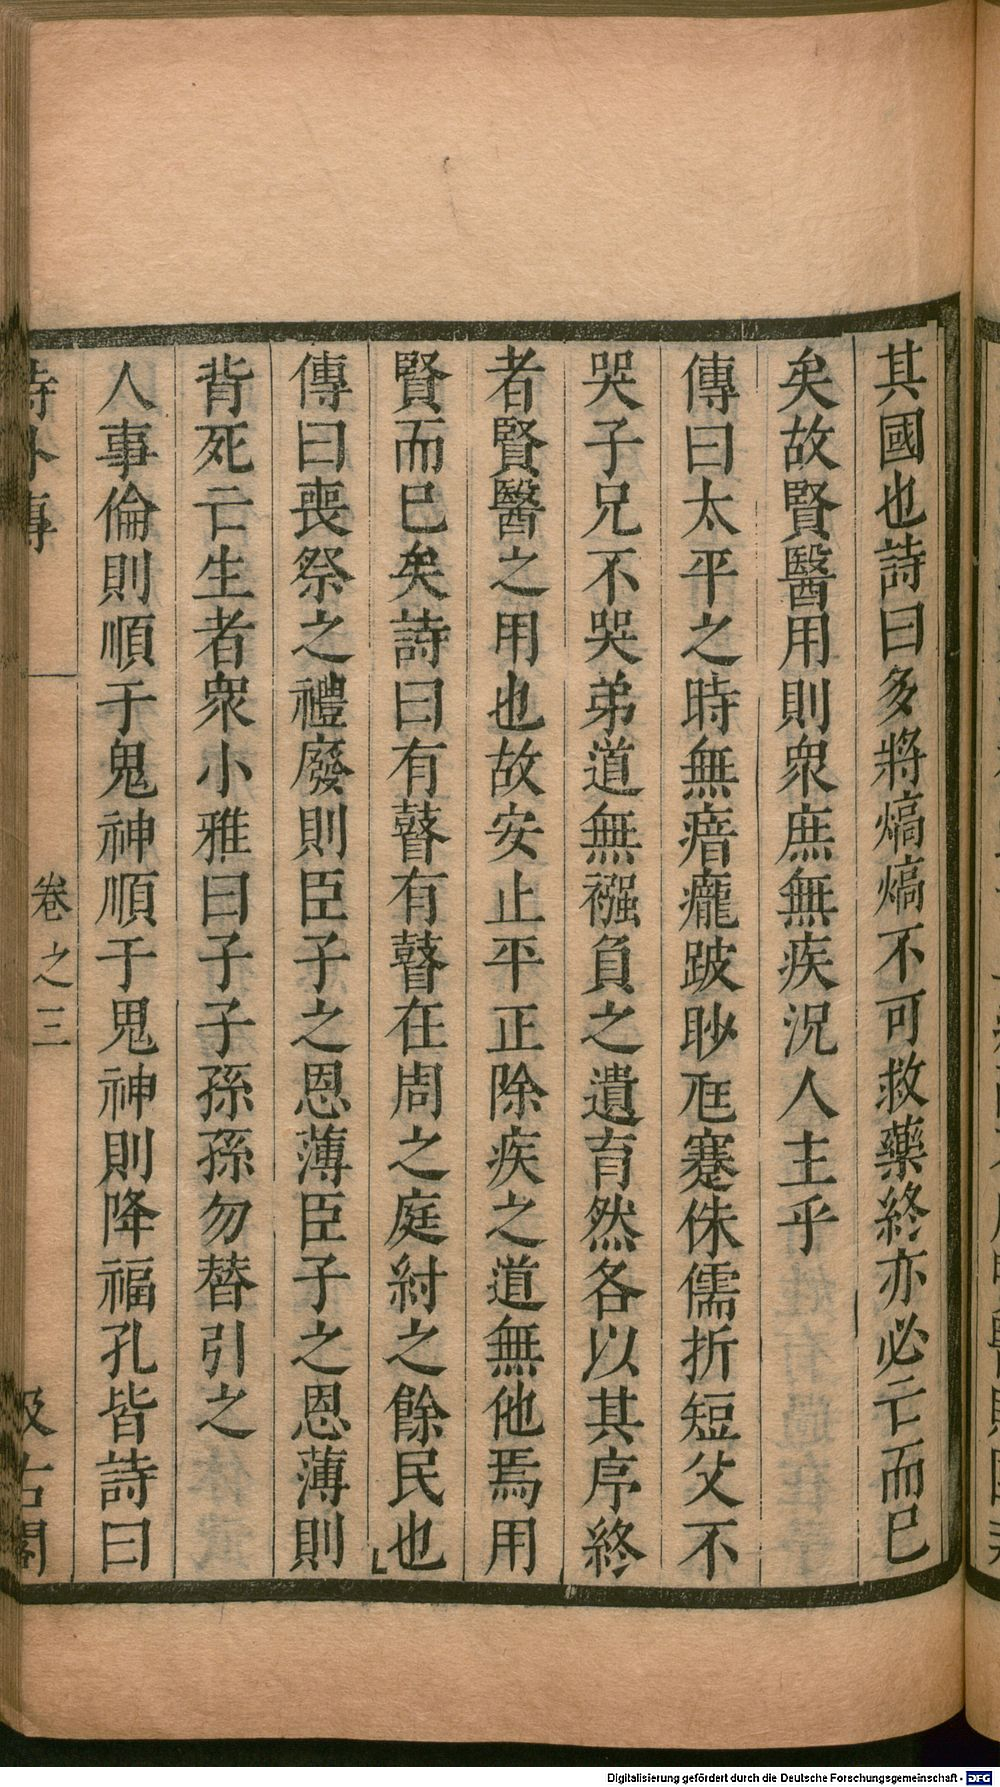 其國也詩曰多將熇熇不可救藥終亦必亡而巳
矣故賢醫用則衆庶無疾况人主乎
傳曰太平之時無瘖𤼃跛眇尫蹇侏儒折短父不
哭子兄不哭弟道無襁負之遺育然各以其序終
者賢醫之用也故安止平正除疾之道無他焉用
賢而巳矣詩曰有瞽有瞽在周之庭紂之餘民也
傳曰喪祭之禮廢則臣子之恩薄臣子之恩薄則
背死亡生者衆小雅曰子子孫孫勿替引之
人事倫則順于鬼神順于鬼神則降福孔皆詩曰
詩外傳 卷之三 汲古閣
Digitalisierung gefördert durch die Deutsche Forschungsgemeinschaft - DFG